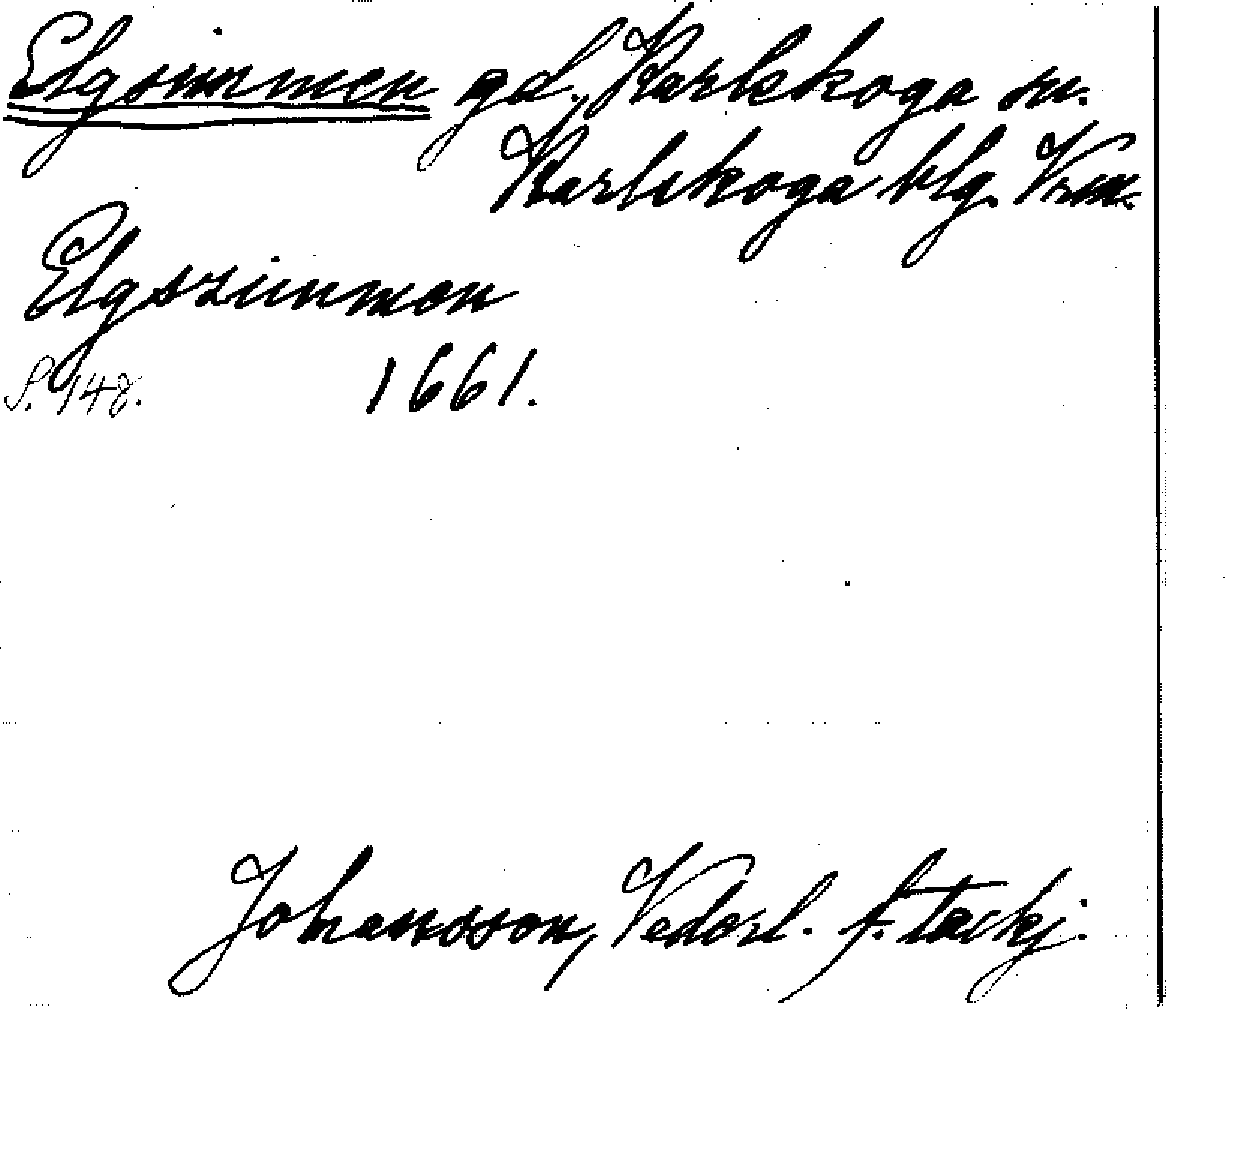 Elgsimmen gd., Karlskoga sn.
Karlskoga blg. Vrm.
Elgszimmen
S. 148. 1661.
Johansson, Vedorl. f. tackj.